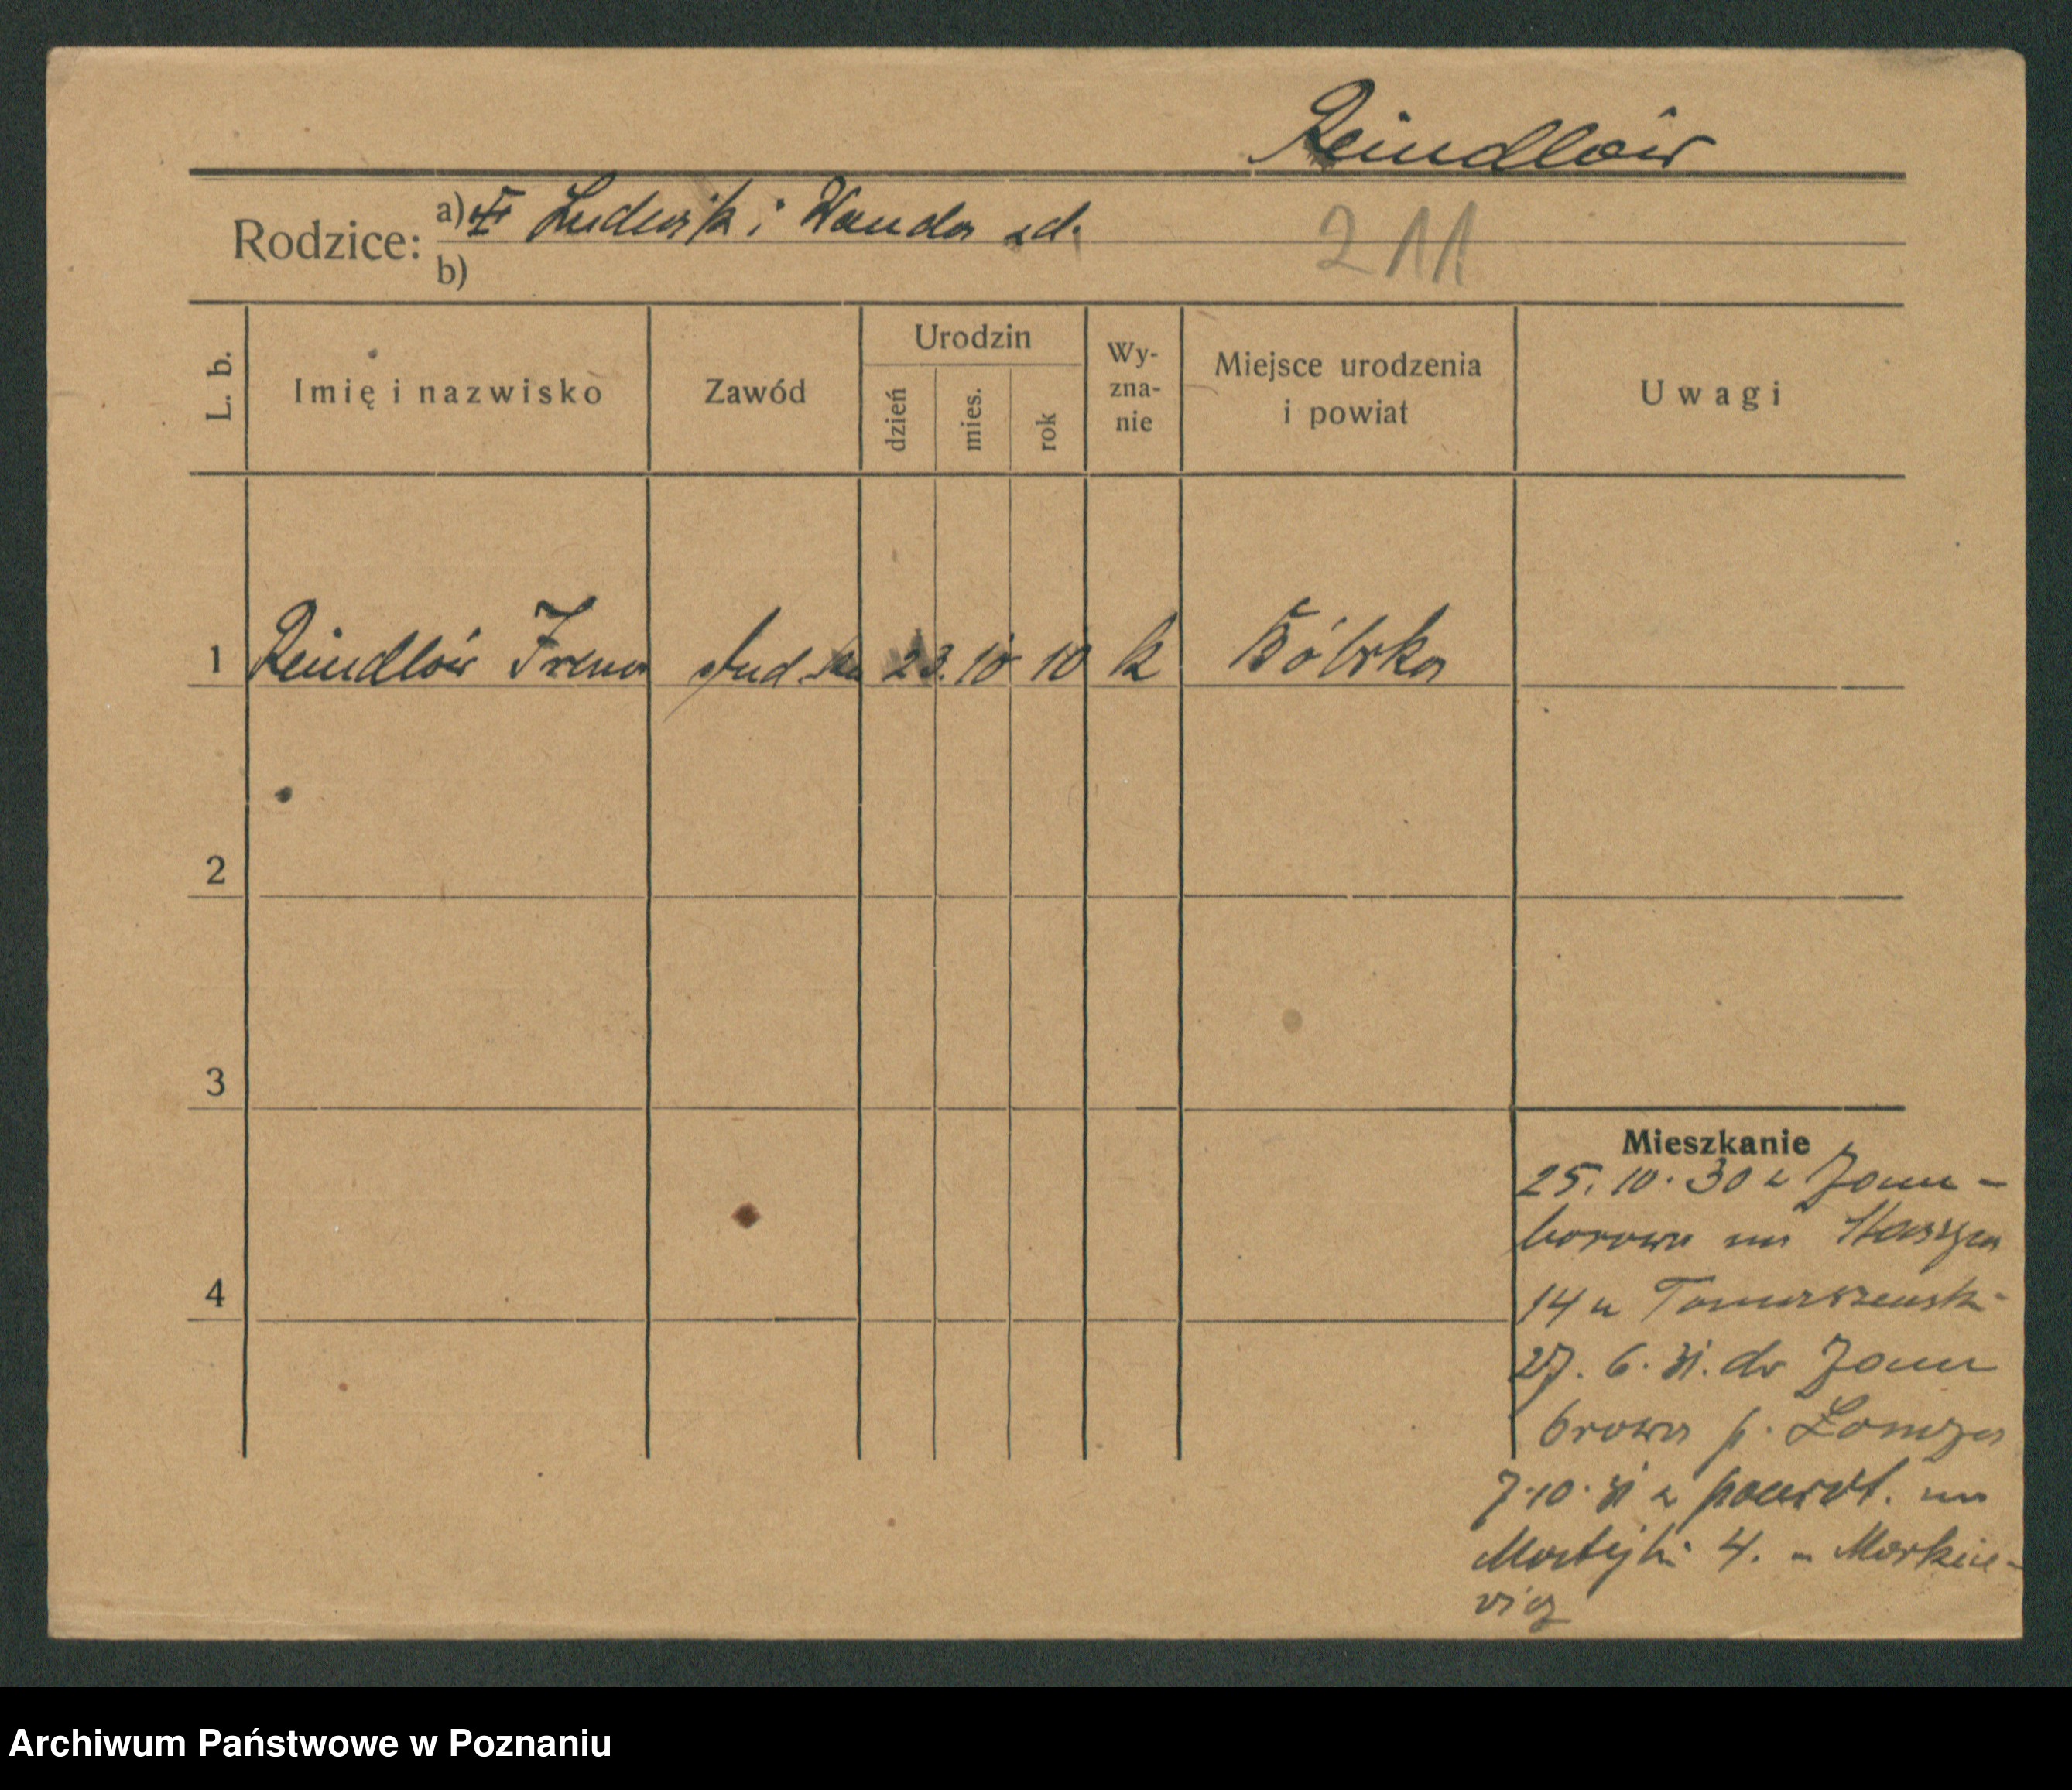 Reindlów
Rodzice: a) Ludwik i Wanda zd.
b)
211
L. b.
Imię i nazwisko
Zawód
Urodzin
dzień
mies.
rok
Wy-
zna-
nie
Miejsce urodzenia
i powiat
Uwagi
1 Reindlów Irena stud. 23. 10 10 k Bóbrka
2
3
4
Mieszkanie
25. 10. 30 z Zam-
borowa na Staszyca
14 u Tomaszewsk-
27. 6. 31. do Zam
browa p. Łomża
7.10.31 z powrót. na
Matejki 4. u Markie-
wicz
Archiwum Państwowe w Poznaniu